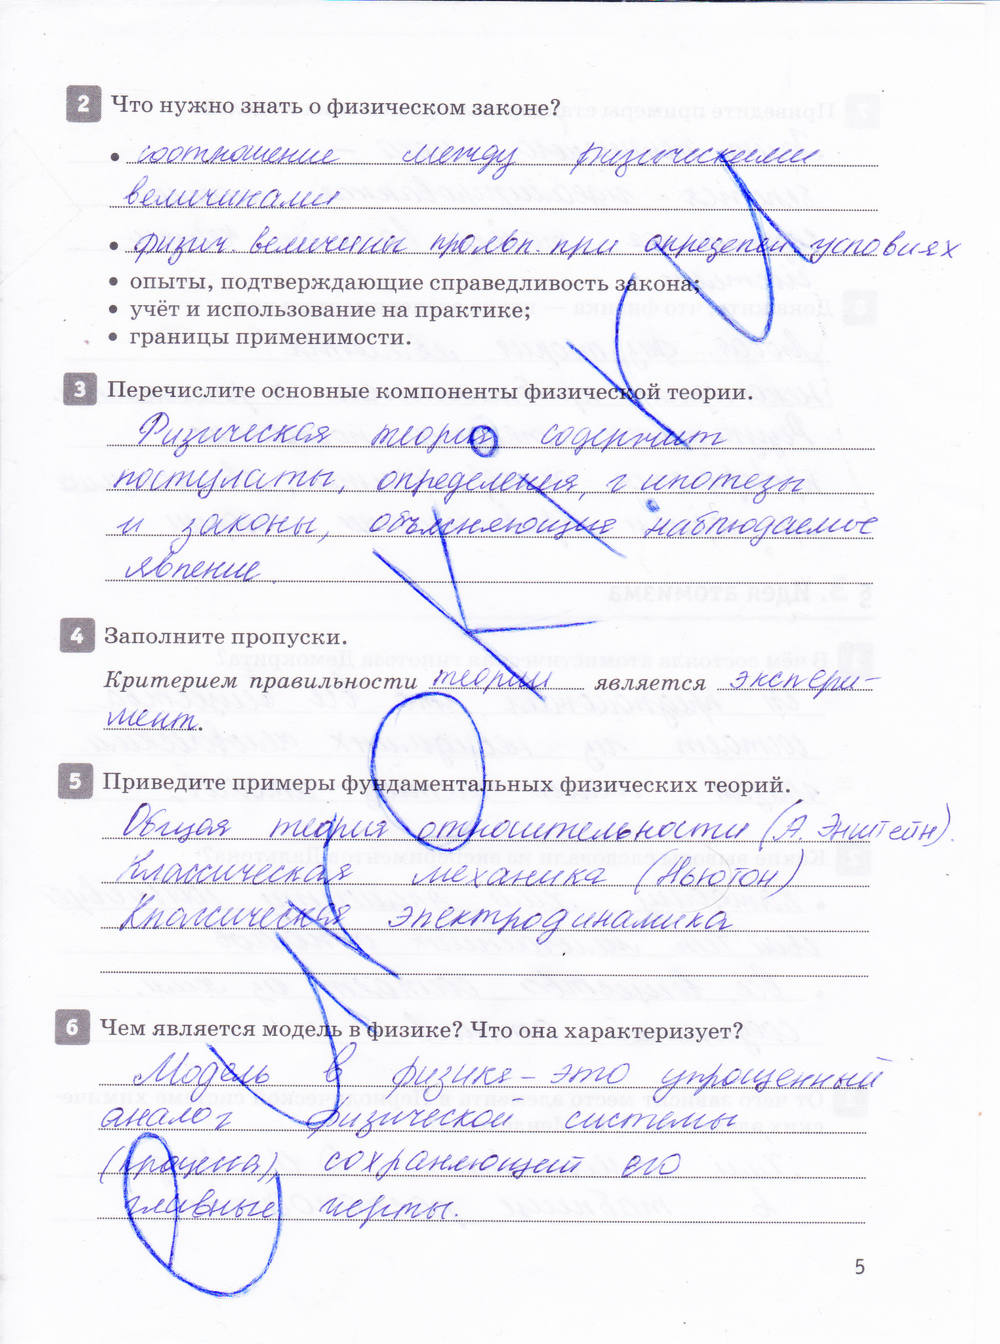 2 Что нужно знать о физическом законе?
• соотношение между физическими
величинами
• физич. величины проявл. при определен. условиях
• опыты, подтверждающие справедливость закона;
• учёт и использование на практике;
• границы применимости.
3 Перечислите основные компоненты физической теории.
Физическая теория содержит
постулаты, определения, гипотезы
и законы, объясняющие наблюдаемое
явление.
4 Заполните пропуски.
Критерием правильности теории является экспери-
мент.
5 Приведите примеры фундаментальных физических теорий.
Общая теория относительности (А. Энштейн).
Классическая механика (Ньютон)
Классическая электродинамика
6 Чем является модель в физике? Что она характеризует?
Модель в физике – это упрощенный
аналог физической системы
(процесса), сохраняющей его
главные черты.
5